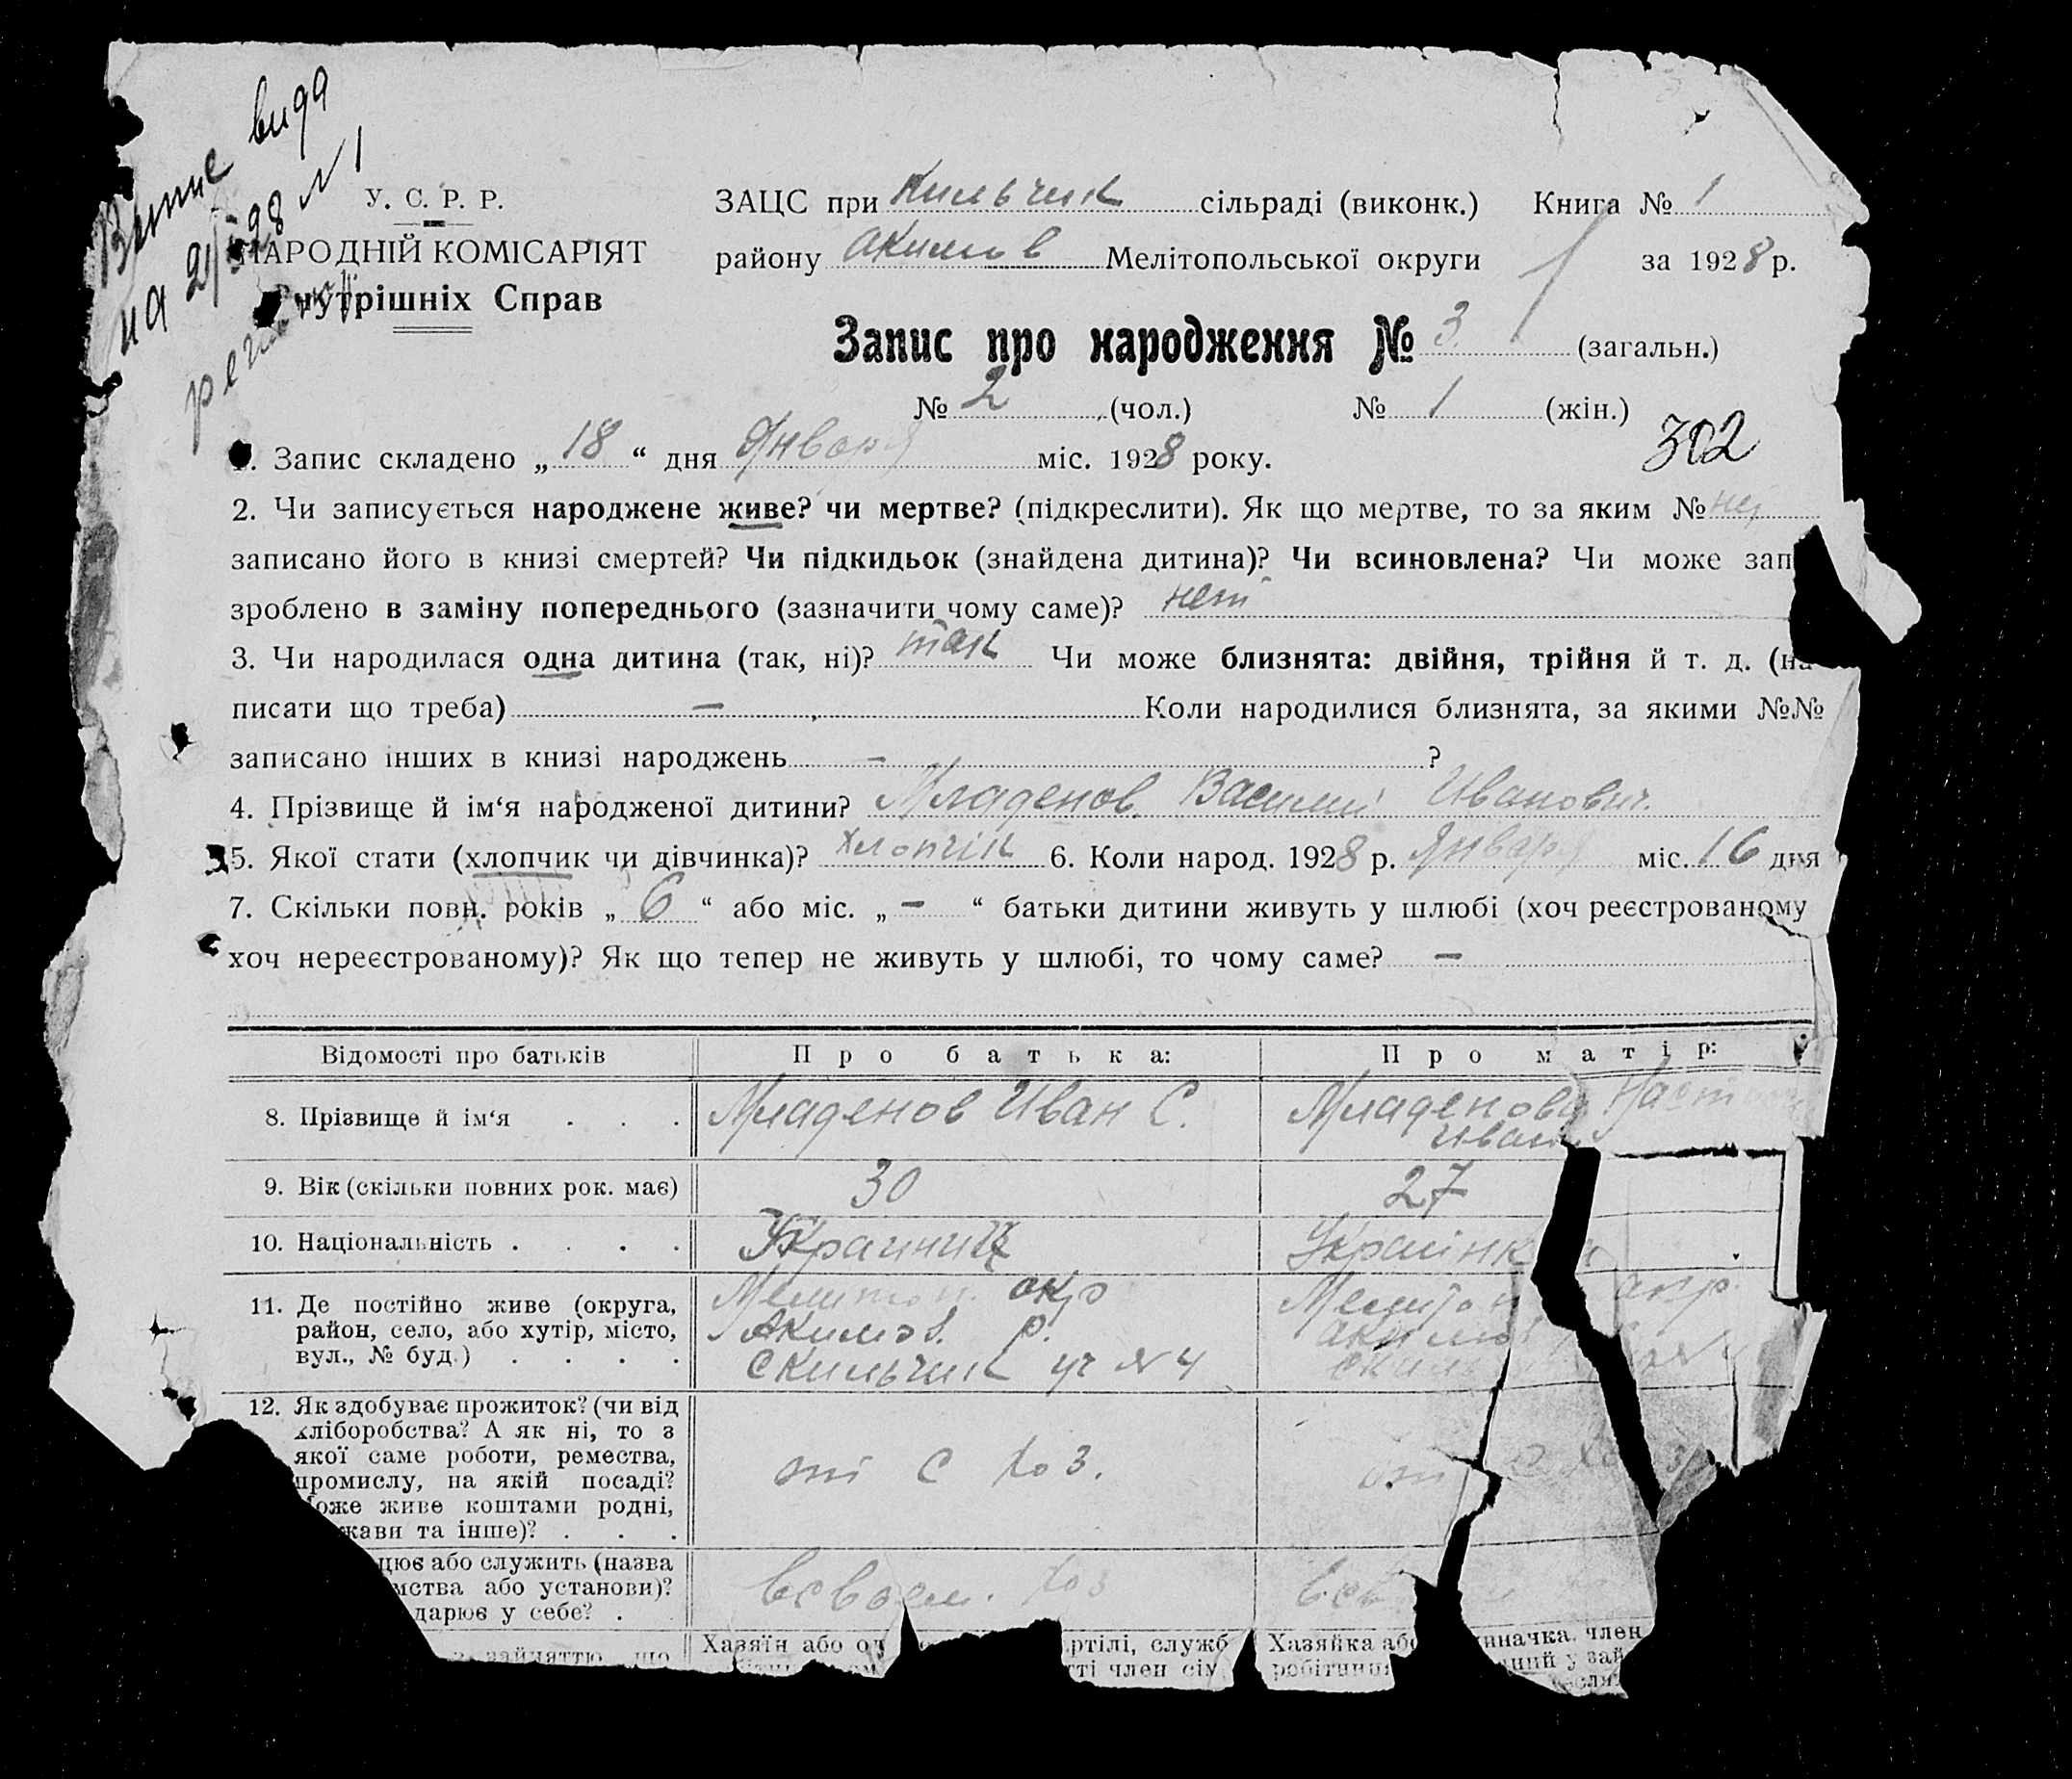 вида
на 21/
№ 1
У. С. Р. Р.
НАРОДНІЙ КОМІСАРІЯТ
нутрішніх Справ
ЗАЦС при Кильчик сільраді (виконк.) Книга № 1
району Акимов Мелітопольської округи за 1928 р.
Запис про народження № 3 (загальн.)
№ 2 (чол.) № 1 (жін.)
302
. Запис складено „ 18 “ дня Января міс. 1928 року.
2. Чи записується народжене живе? чи мертве? (підкреслити). Як що мертве, то за яким №
записано його в книзі смертей? Чи підкидьок (знайдена дитина)? Чи всиновлена? Чи може зап
зроблено в заміну попереднього (зазначити чому саме)? нет
3. Чи народилася одна дитина (так, ні)? так Чи може близнята: двійня, трійня й т. д. (на
писати що треба) — Коли народилися близнята, за якими №№
записано інших в книзі народжень - ?
4. Прізвище й ім‘я народженої дитини? Младенов Василий Иванович.
5. Якої стати (хлопчик чи дівчинка)? хлопчік 6. Коли народ. 1928 р. Января міс. 16 дня
7. Скільки повн. років „ 6 “ або міс. „ — “ батьки дитини живуть у шлюбі (хоч реєстрованому
хоч нереєстрованому)? Як що тепер не живуть у шлюбі, то чому саме? —
Відомості про батьків Про батька: Про матір:
8. Прізвище й ім‘я . . . Младенов Иван С. Младенова Наст
Иван
9. Вік (скільки повних рок. має) 30 27
10. Національність . . . . Українц Українк
11. Де постійно живе (округа, Мелитоп. окр Мелитоп окр.
район, село, або хутір, місто, Акимов. р. Акимов
вул., № буд.) . . . . с Кильчик уч № 4 с Киль
12. Як здобуває прожиток? (чи від
хліборобства? А як ні, то з
якої саме роботи, ремества,
промислу, на якій посаді? от с хоз. от с хоз
оже живе коштами родні,
жави та інше)? . . .
цює або служить (назва
мства або установи)? в своем. хоз в св
дарює у себе? .
зайняттю, що Хазяїн або од ртілі, служб Хазяйка або иначка, член
ті член сім робітниця ний у зай